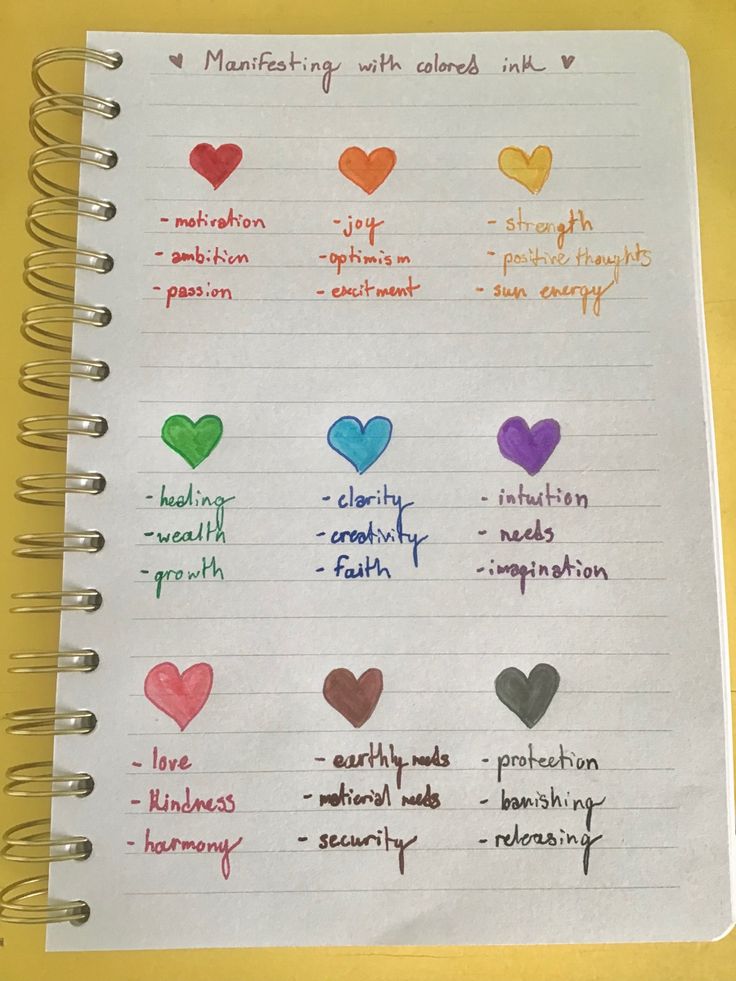 ♥ Manifesting with colored ink ♥
- motivation
- ambition
- passion
- joy
- optimism
- excitment
- strength
- positive thoughts
- sun energy
- healing
- wealth
- growth
- clarity
- creativity
- faith
- intuition
- needs
- imagination
- love
- kindness
- harmony
- earthly needs
- material needs
- security
- protection
- banishing
- releasing